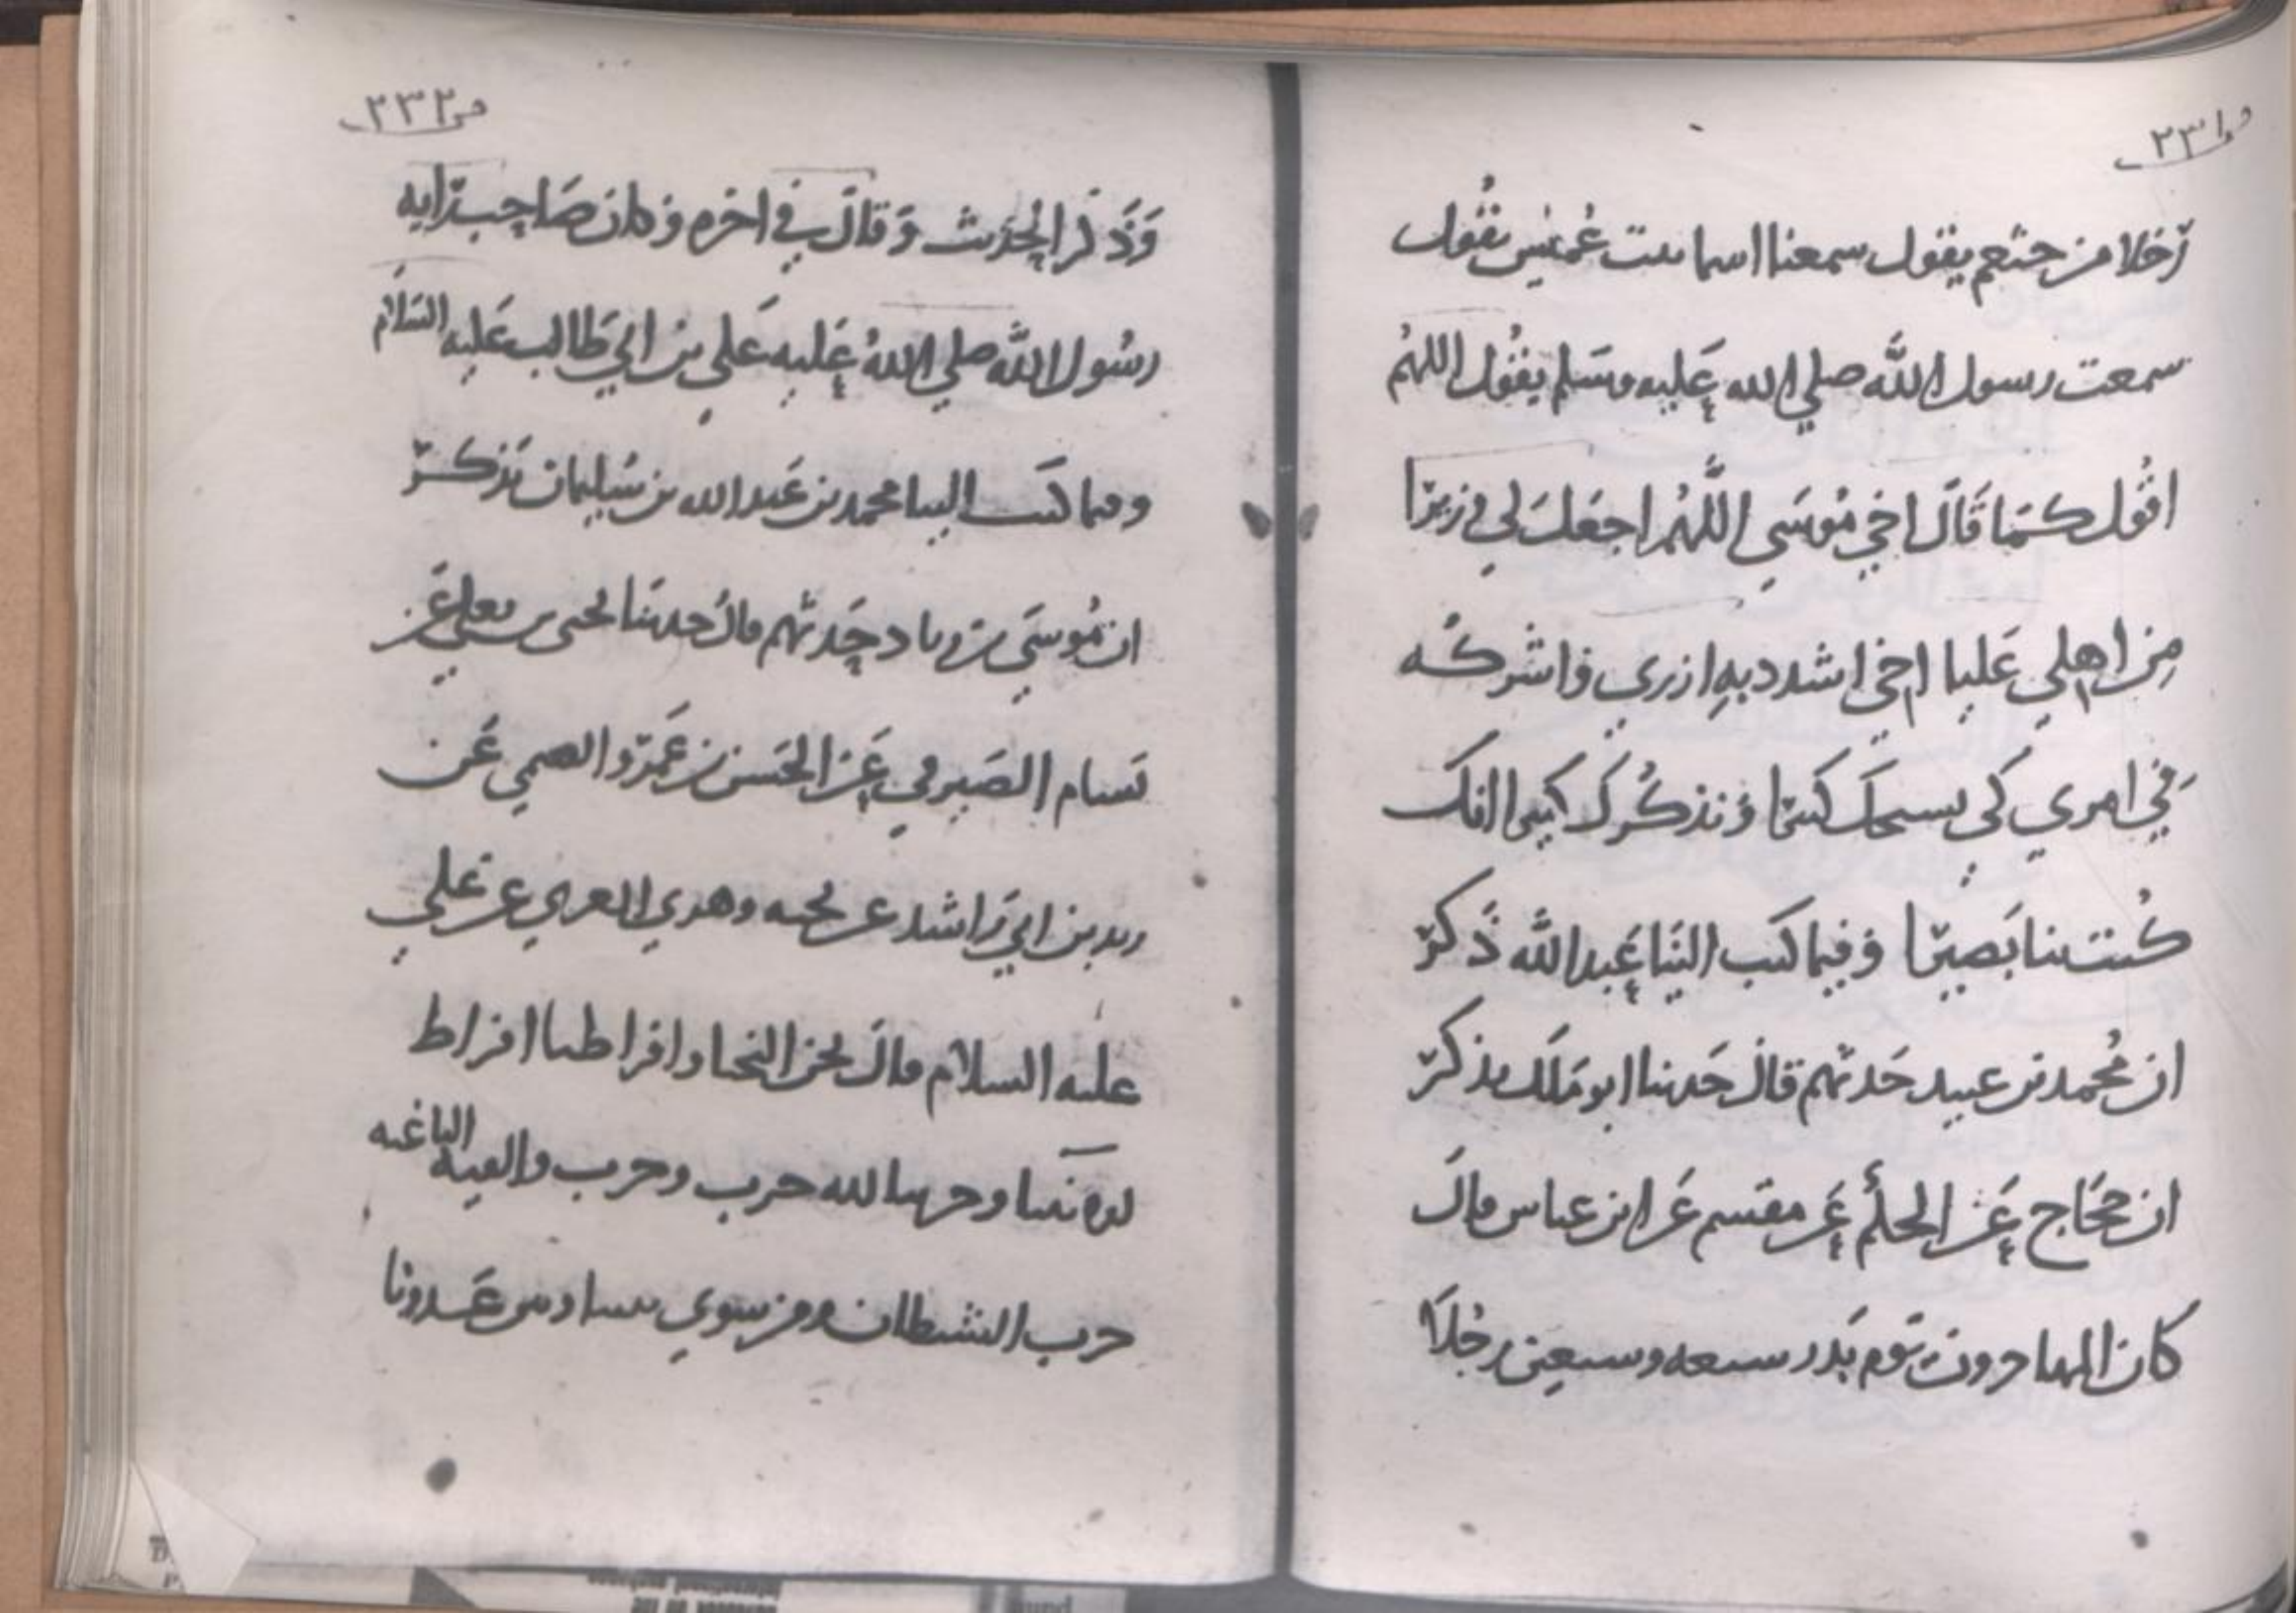 ص ٢٣١
رجلا من خثعم يقول سمعنا اسما بنت عميس يقول
سمعت رسول الله صلي الله عليه وسلم يقول اللهم
اقول كما قال اخي موسي اللهم اجعل لي وزيرا
من اهلي عليا اخي اشدد به ازري واشركه
في امري كي نسبحك كثيرا ونذكرك كثيرا انك
كنت بنا بصيرا وفيما كتب الينا عبد الله ذكر
ان محمد بن عبيد حدثهم قال حدثنا ابو ملك يذكر
ان حجاج عن الحكم عن مقسم عن ابن عباس قال
كان المهاجرون يوم بدر سبعه وسبعين رجلا
ص ٢٣٢
وذكر الحديث وقال في اخره وكان صاحب رايه
رسول الله صلي الله عليه علي بن ابي طالب عليه السلام
ومما كتب الينا محمد بن عبد الله بن سليمان يذكر
ان موسي بن زياد حدثهم قال حدثنا يحيى بن يعلي عن
بسام الصيرفي عن الحسن بن عمرو الفقيمي عن
رشيد بن ابي راشد عن حبه وهو العرني عن علي
عليه السلام قال نحن النجبا وافراطنا افراط
الانبيا وحزبنا حزب الله وحزب الفيه الباغيه
حزب الشيطان ومن سوي بيننا وبين عدونا